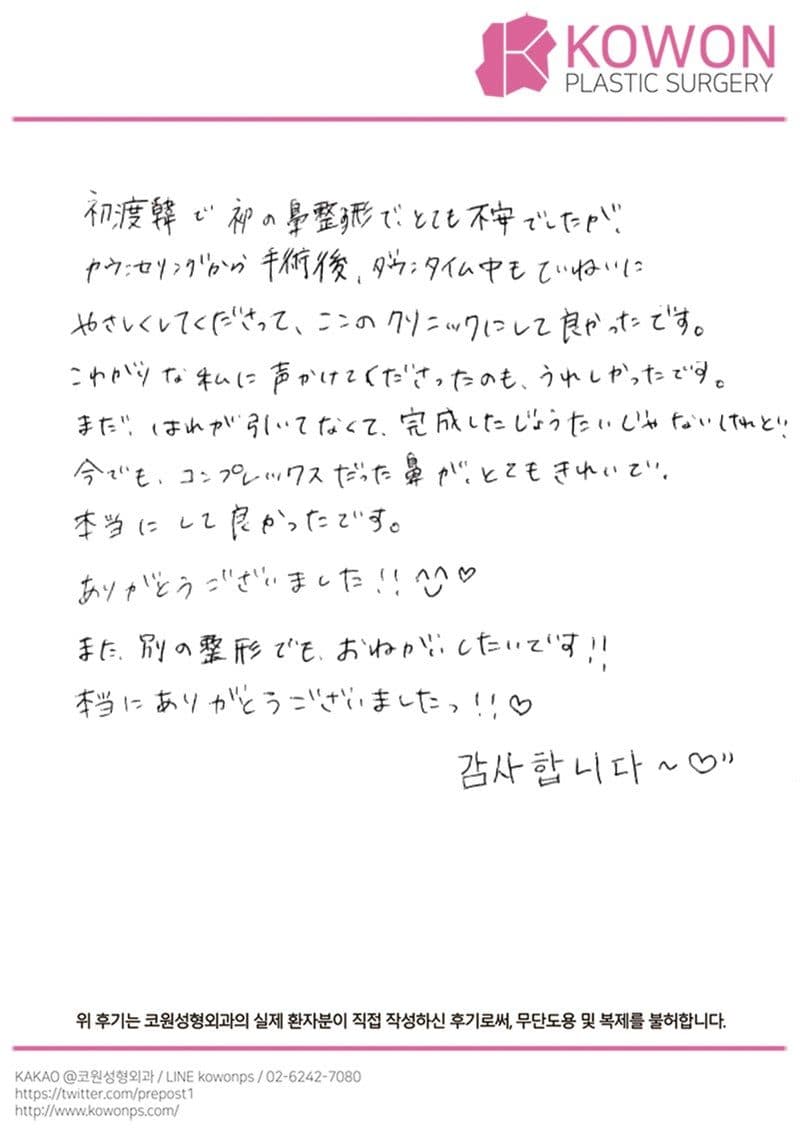 KOWON
PLASTIC SURGERY
初渡韓で初の鼻整形で、とても不安でしたが、
カウンセリングから手術後、ダウンタイム中もていねいに
やさしくしてくださって、ここのクリニックにして良かったです。
こわがりな私に声かけてくださったのも、うれしかったです。
まだ、はれが引いてなくて、完成したじょうたいじゃないけれど、
今でも、コンプレックスだった鼻が、とてもきれいで、
本当にして良かったです。
ありがとうございました!! ^^♡
また、別の整形でも、おねがいしたいです!!
本当にありがとうございましたっ!!♡
감사합니다~♡"
위 후기는 코원성형외과의 실제 환자분이 직접 작성하신 후기로써, 무단도용 및 복제를 불허합니다.
KAKAO @코원성형외과 / LINE kowonps / 02-6242-7080
https://twitter.com/prepost1
http://www.kowonps.com/